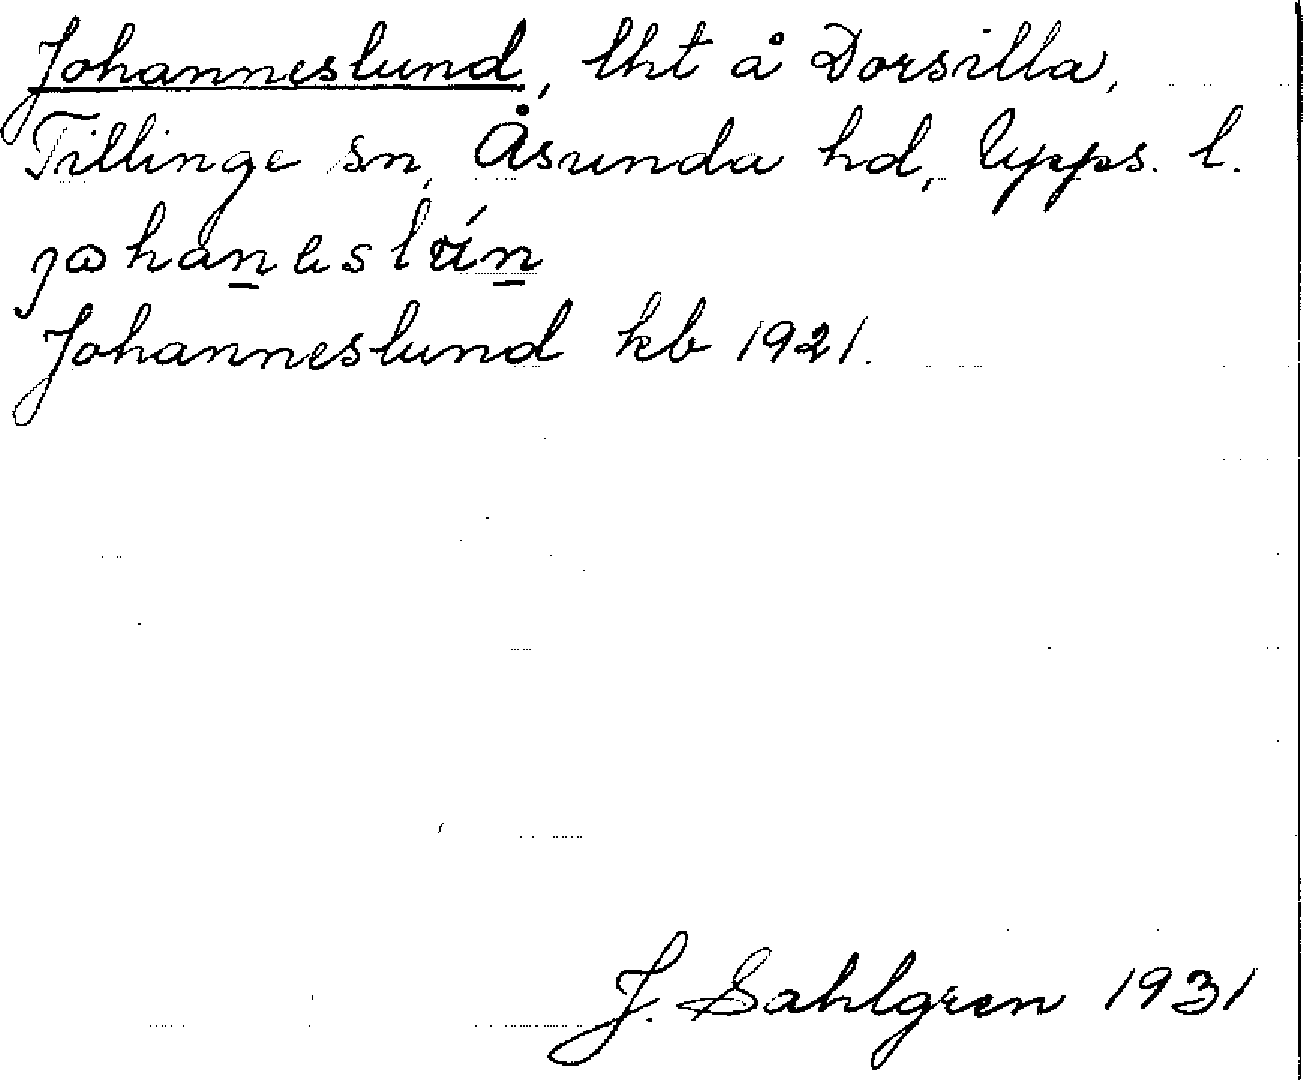 Johanneslund, lht å Dorsilla,
Tillinge sn, Åsunda hd, Upps. l.
Johanneslund kb 1921.
J. Sahlgren 1931